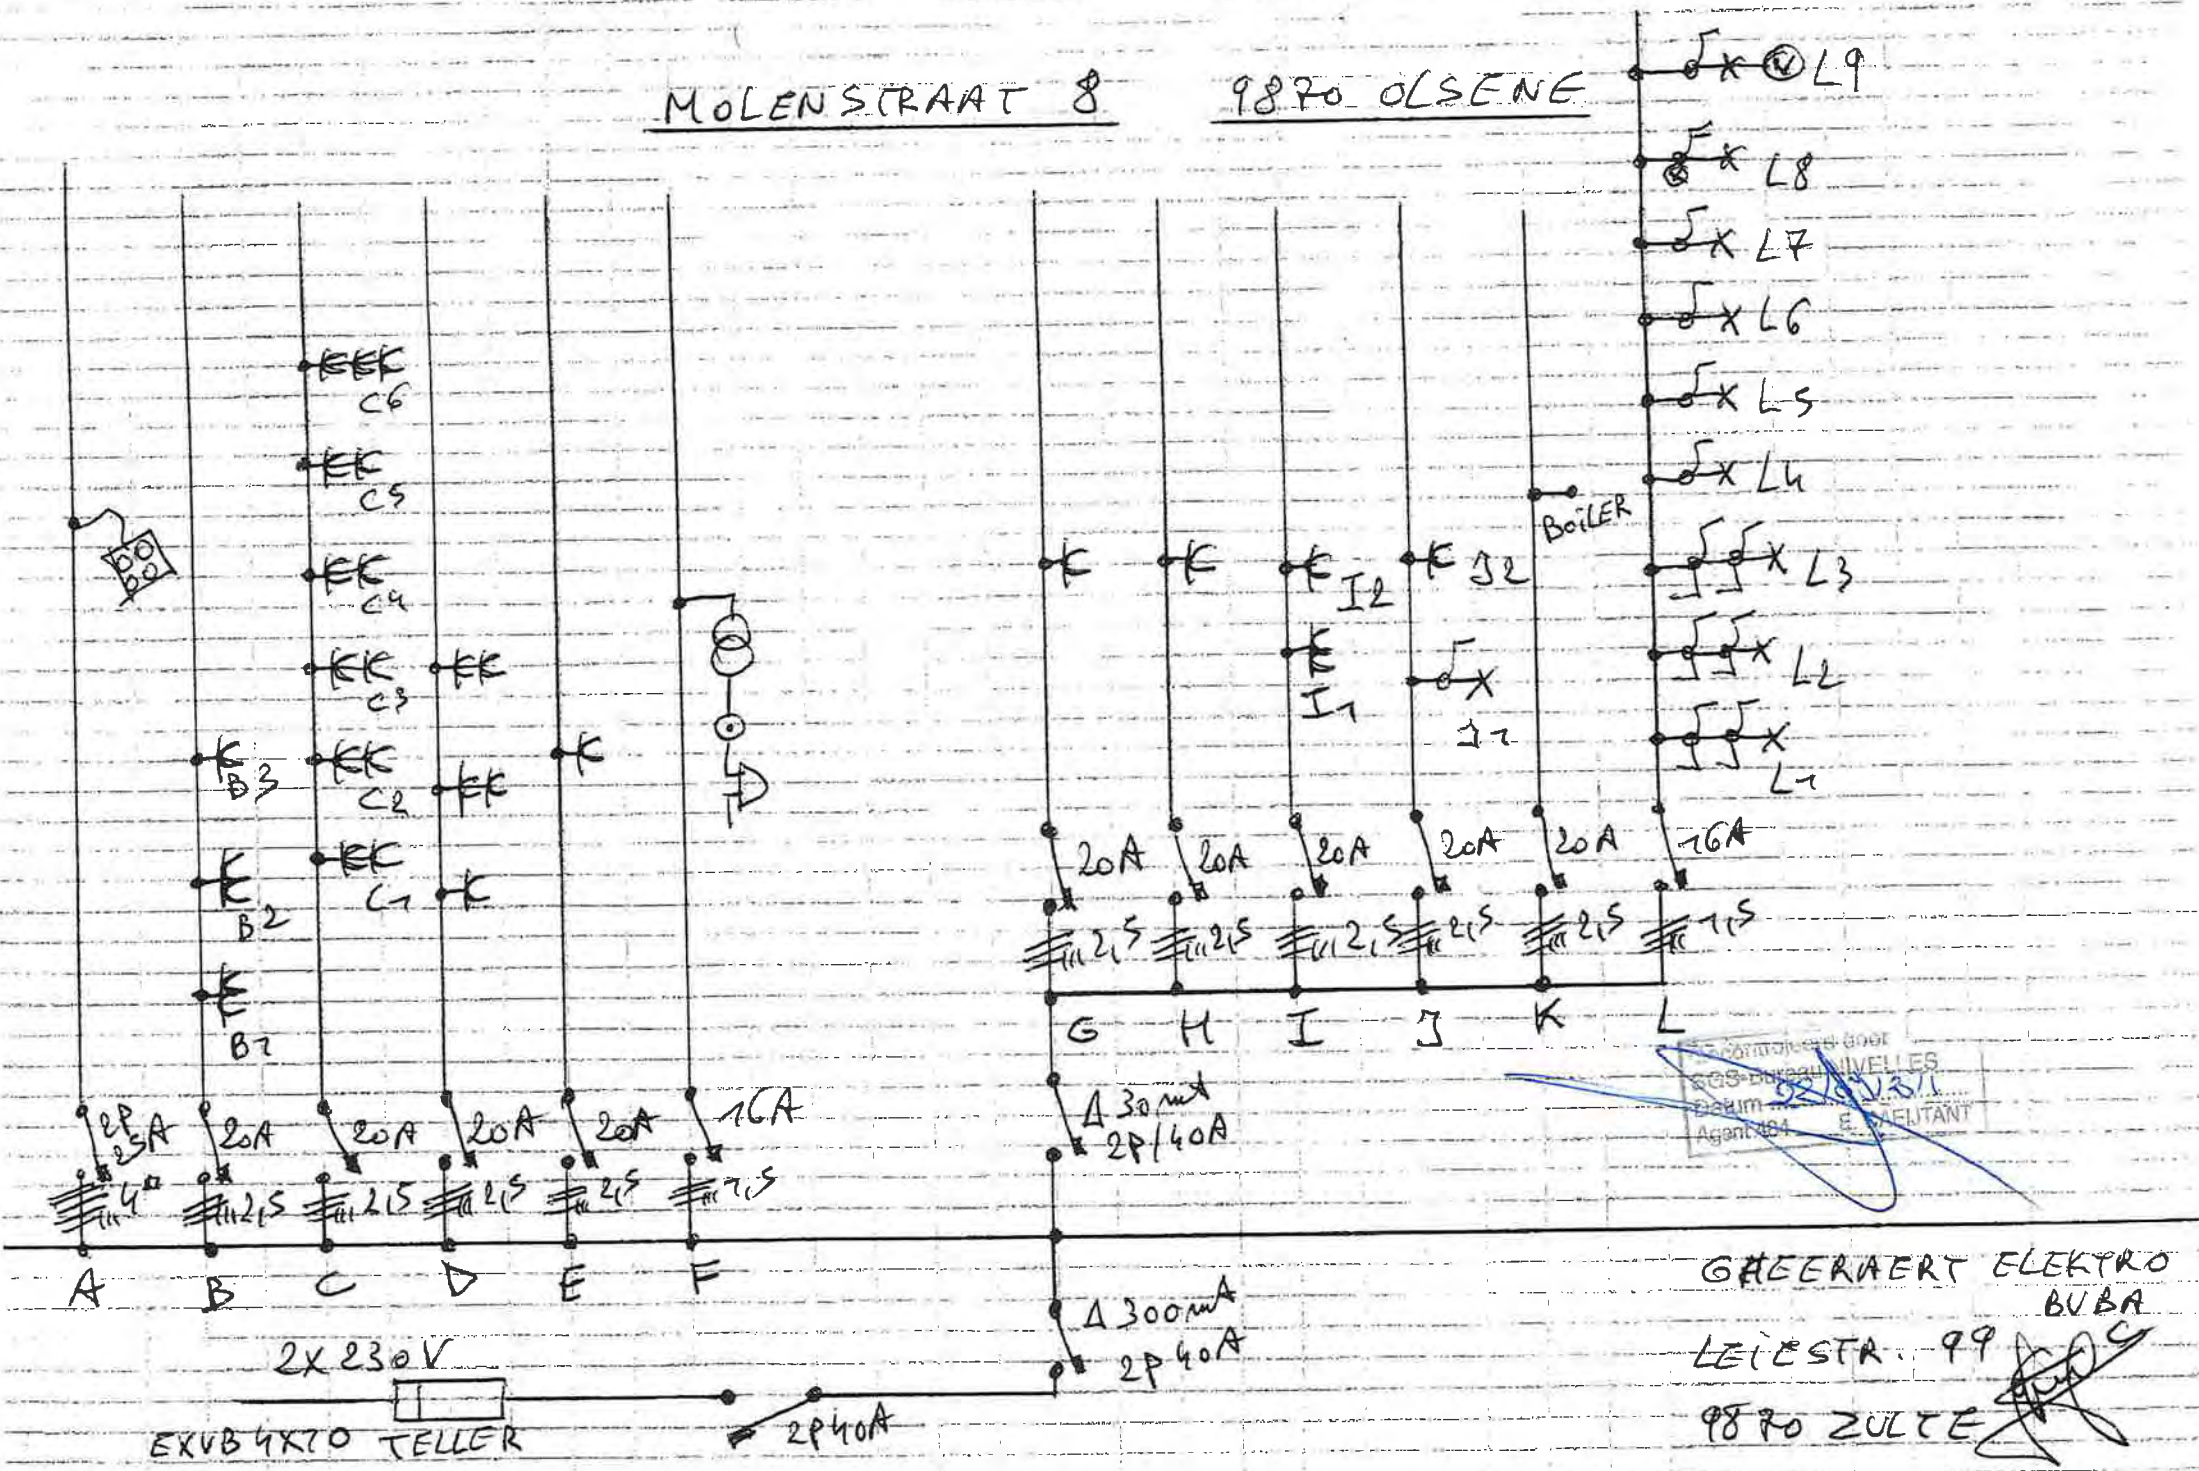 MOLENSTRAAT 8 9870 OLSENE
L9
L8
L7
L6
L5
L4
L3
L2
L1
C6
C5
C4
C3
C2
C1
B3
B2
B1
I2
I1
J2
J1
BOiLER
20A 20A 20A 20A 20A 16A
2,5 2,5 2,5 2,5 2,5 1,5
G H I J K L
2P
25A 20A 20A 20A 20A 16A
4□ 2,5 2,5 2,5 2,5 1,5
A B C D E F
Δ 30mA
2P/40A
Δ 300mA
2P 40A
2X230V
EXVB 4X10 TELLER
2P40A
Gecontroleerd door
SGS-Bureau NIVELLES
Datum
Agent 484
GHEERAERT ELEKTRO
BVBA
LEIESTR. 99
9870 ZULTE